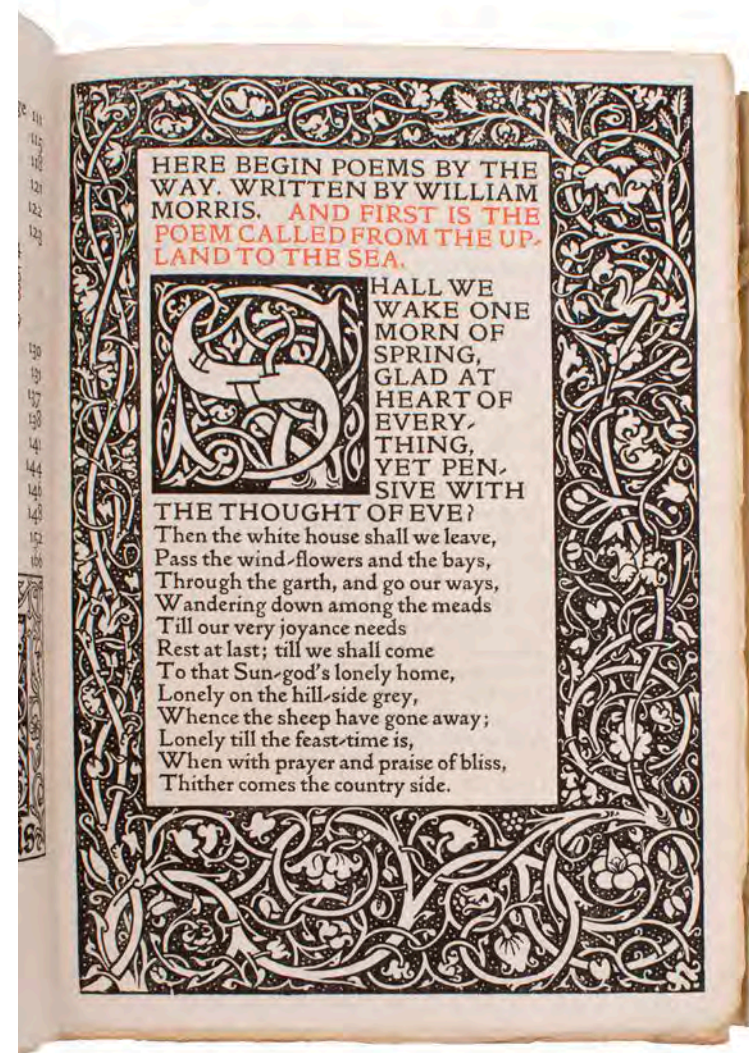 111
115
118
121
122
123
130
131
137
138
141
144
146
148
152
HERE BEGIN POEMS BY THE
WAY. WRITTEN BY WILLIAM
MORRIS. AND FIRST IS THE
POEM CALLED FROM THE UP-
LAND TO THE SEA.
SHALL WE
WAKE ONE
MORN OF
SPRING,
GLAD AT
HEART OF
EVERY-
THING,
YET PEN-
SIVE WITH
THE THOUGHT OF EVE?
Then the white house shall we leave,
Pass the wind-flowers and the bays,
Through the garth, and go our ways,
Wandering down among the meads
Till our very joyance needs
Rest at last; till we shall come
To that Sun-god's lonely home,
Lonely on the hill-side grey,
Whence the sheep have gone away;
Lonely till the feast-time is,
When with prayer and praise of bliss,
Thither comes the country side.